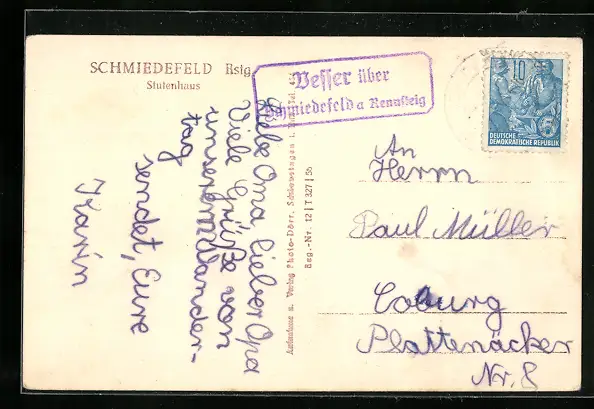 SCHMIEDEFELD Rstg.
Stutenhaus
Vesser über
Schmiedefeld a Rennsteig
10
5
DEUTSCHE
DEMOKRATISCHE REPUBLIK
Liebe Oma, lieber Opa
Viele Grüße von
unserem Wander-
tag
sendet, Eure
Karin
Aufnahme u. Verlag Photo-Dörr, Schleusingen i.
Reg.-Nr. 12 | T 327 | 56
An
Herrn
Paul Müller
Coburg
Plattenäcker
Nr. 8